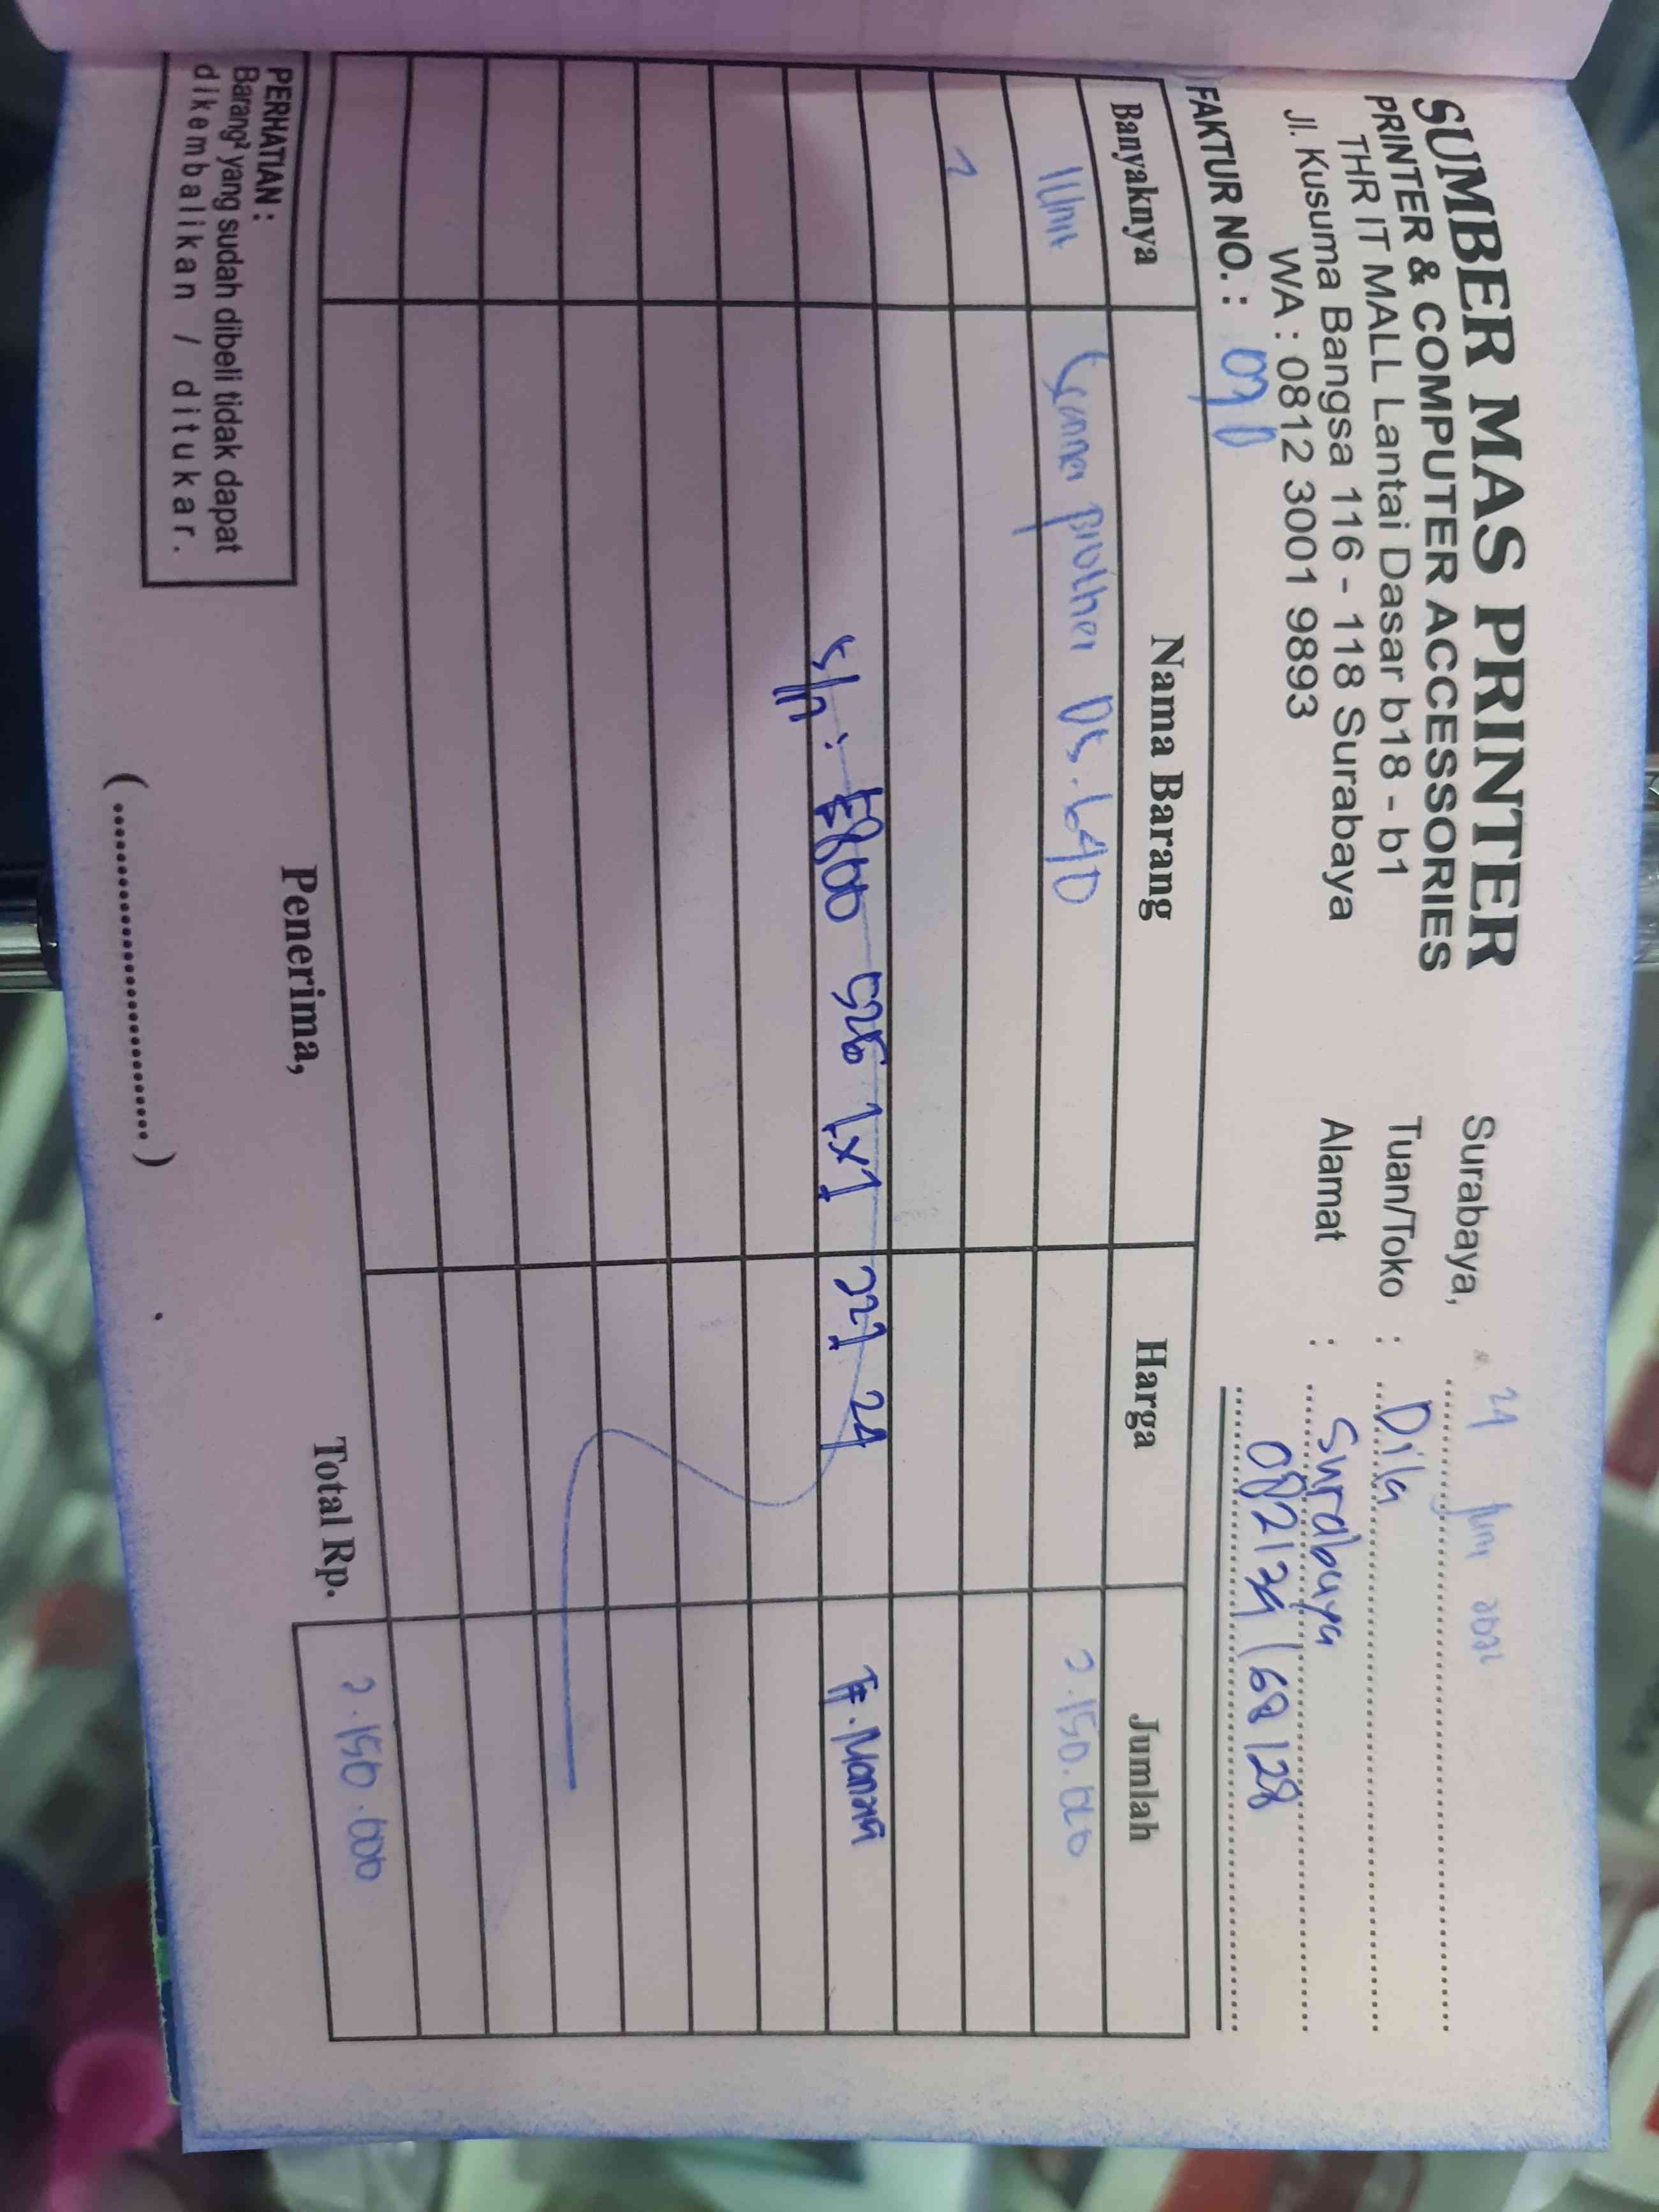 SUMBER MAS PRINTER
PRINTER & COMPUTER ACCESSORIES
THR IT MALL Lantai Dasar b18 - b1
Jl. Kusuma Bangsa 116 - 118 Surabaya
WA : 0812 3001 9893
FAKTUR NO. :
Surabaya, 24 Juni 2022
Tuan/Toko : Dila
Alamat : Surabaya
Banyaknya Nama Barang Harga Jumlah
1 Unit Scanner brother DS.640 2.150.000
s/n :
TF. Mandiri
Total Rp. 2.150.000
PERHATIAN :
Barang² yang sudah dibeli tidak dapat
dikembalikan / ditukar.
Penerima,
(..............................)